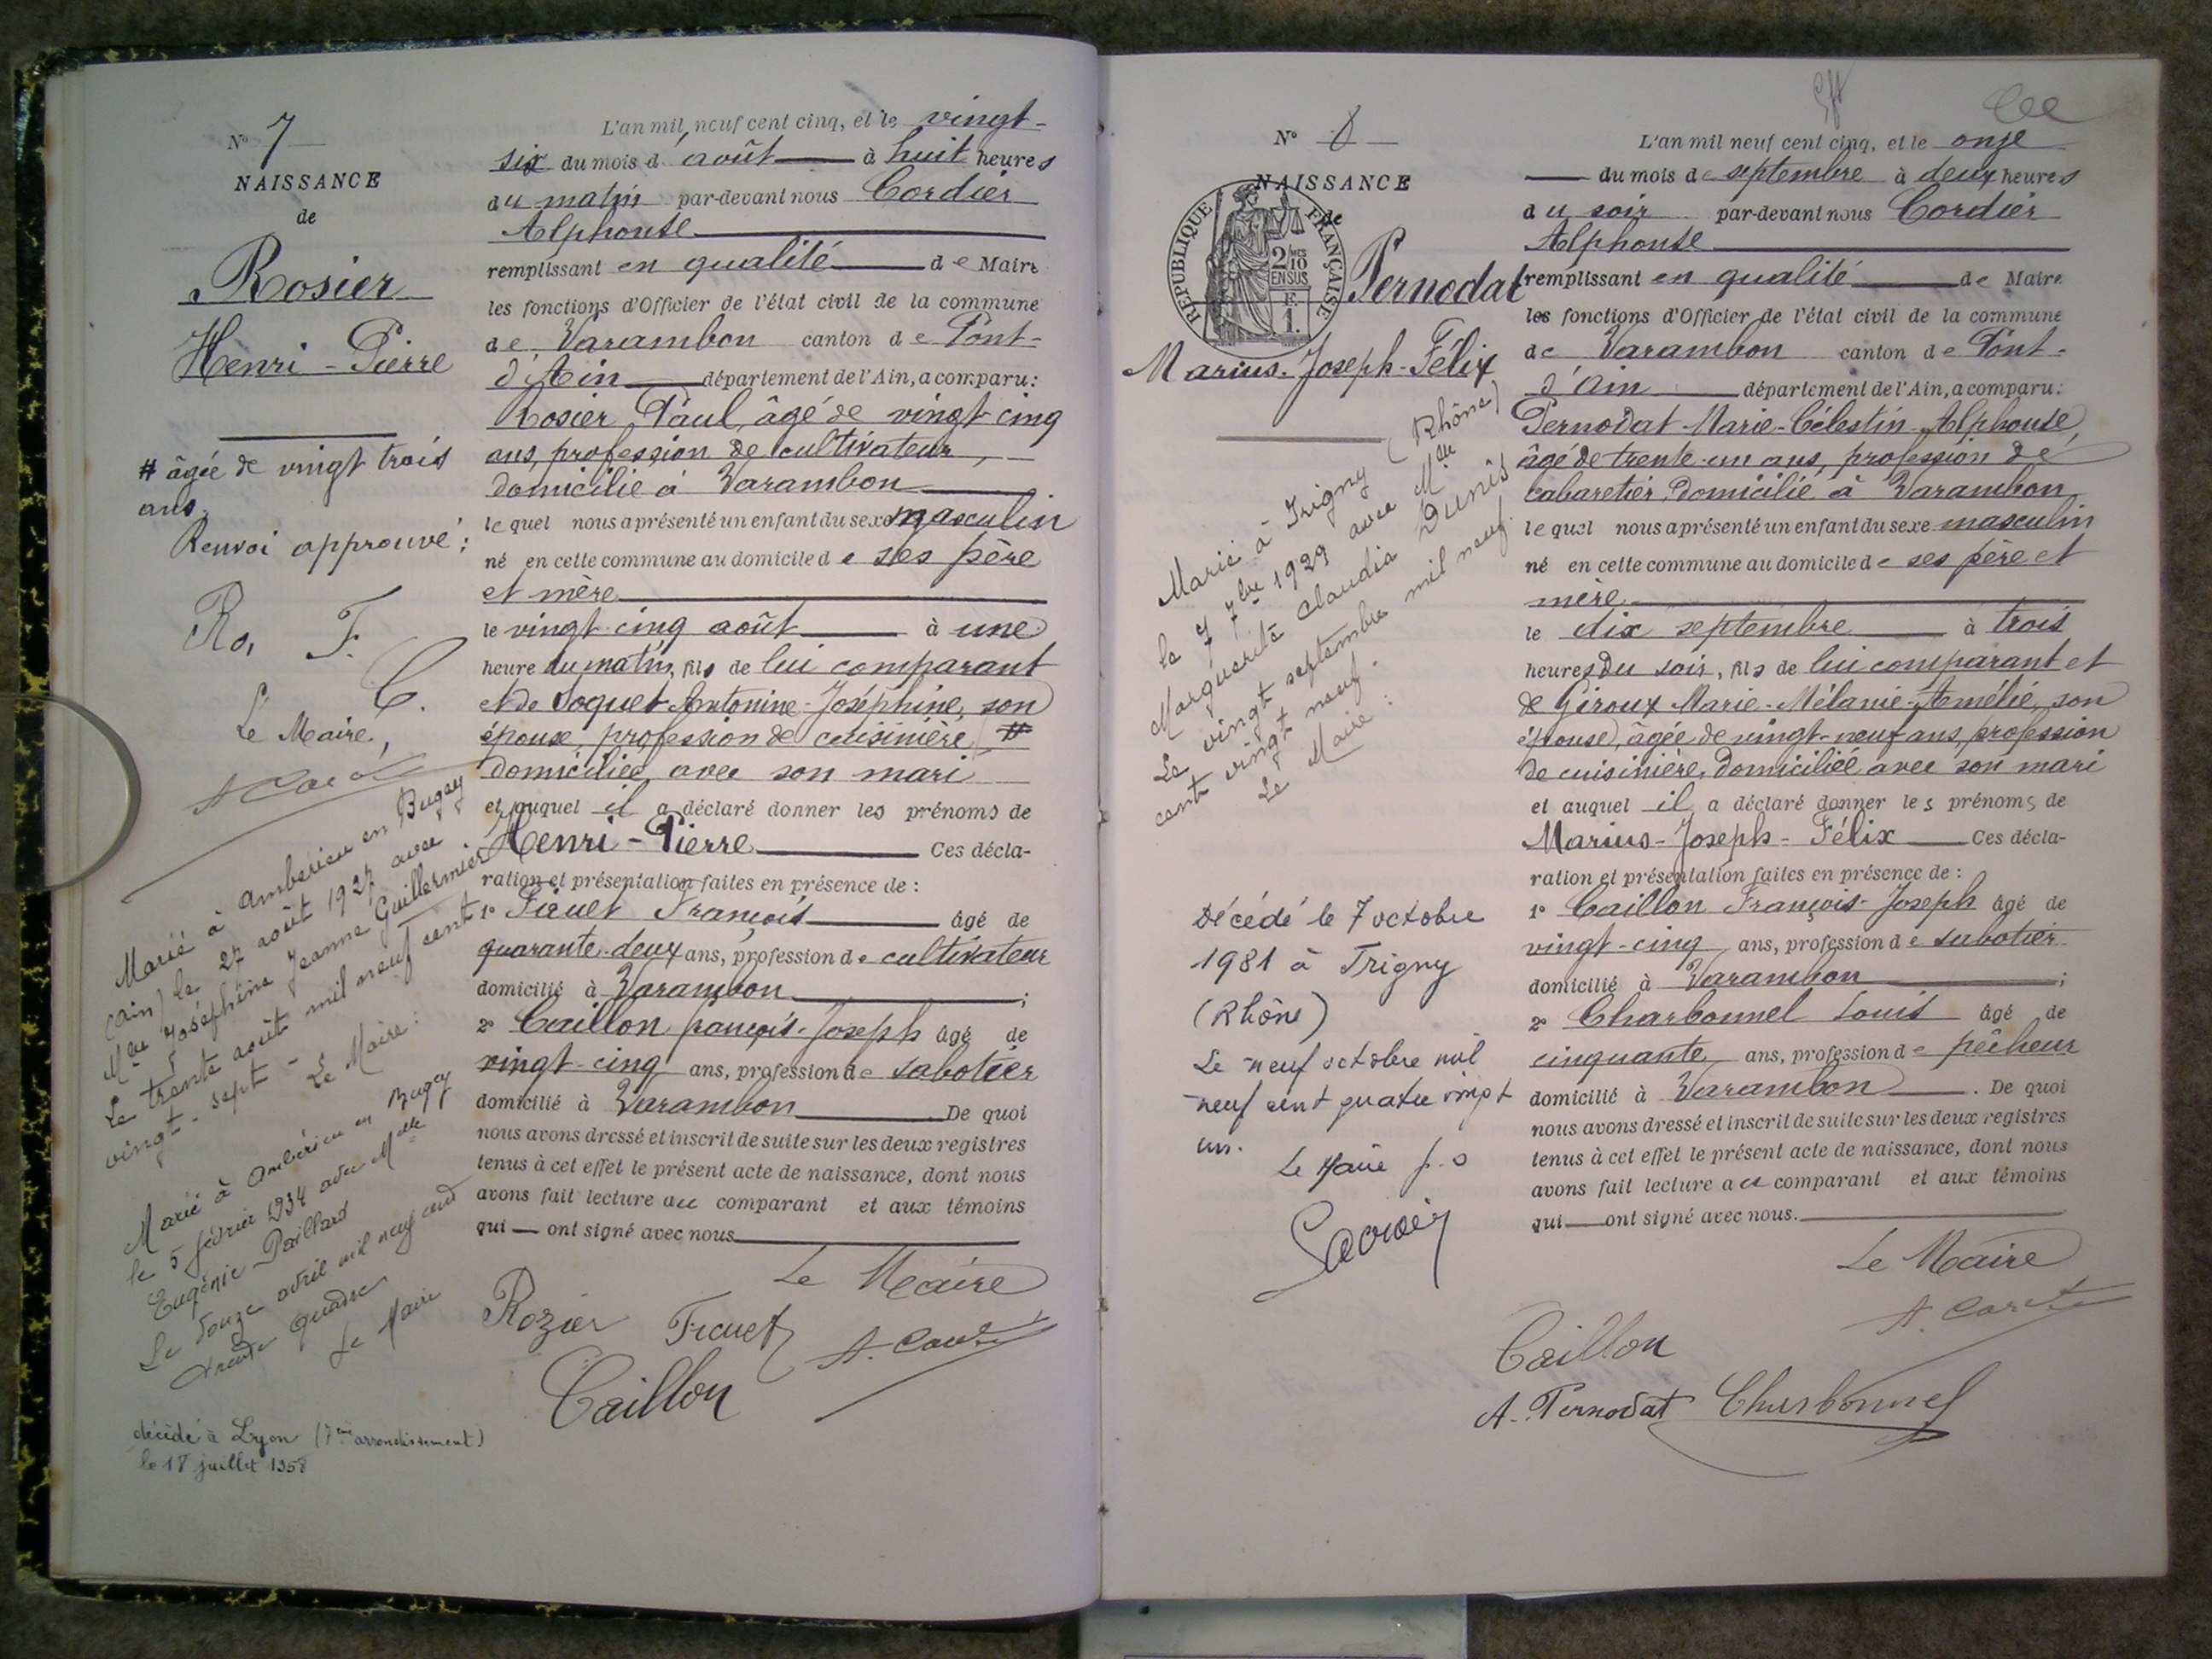 N° 7
NAISSANCE
de
Rosier
Henri-Pierre
# âgée de vingt trois
ans.
Renvoi approuvé :
Ro. F.
C.
Le Maire,
Marié à Ambérieu en Bugey
(Ain) le 27 août 1927 avec
Mlle Joséphine Jeanne Guillermier
Le trente août mil neuf cent
vingt-sept - Le Maire :
Marié à Ambérieu en Bugey
le 5 février 1934 avec Mlle
Eugénie Paillard
Le douze avril mil neuf cent
trente quatre
Le Maire
décédé à Lyon (7ème arrondissement)
le 18 juillet 1958
L'an mil neuf cent cinq, et le vingt-
six du mois d'août à huit heures
du matin par-devant nous Cordier
Alphonse
remplissant en qualité de Maire
les fonctions d'Officier de l'état civil de la commune
de Varambon canton de Pont-
d'Ain département de l'Ain, a comparu :
Rosier Paul, âgé de vingt cinq
ans, profession de cultivateur,
domicilié à Varambon
lequel nous a présenté un enfant du sexe masculin
né en cette commune au domicile de ses père
et mère
le vingt cinq août à une
heure du matin, fils de lui comparant
et de Joséphine, son
épouse profession de cuisinière #
domiciliée avec son mari
et auquel il a déclaré donner les prénoms de
Henri-Pierre Ces décla-
ration et présentation faites en présence de :
1° François âgé de
quarante-deux ans, profession de cultivateur
domicilié à Varambon ;
2° Caillon françois-Joseph âgé de
vingt-cinq ans, profession de sabotier
domicilié à Varambon De quoi
nous avons dressé et inscrit de suite sur les deux registres
tenus à cet effet le présent acte de naissance, dont nous
avons fait lecture au comparant et aux témoins
qui — ont signé avec nous
Le Maire
Rozier
Caillon
N° 8
NAISSANCE
de
RÉPUBLIQUE FRANÇAISE
2/10
EN SUS
F.
1.
Pernodat
Marius-Joseph-Félix
Marié à Irigny (Rhône)
le 7 7bre 1929 avec Mlle
Marguerite Claudia Dunis
Le vingt septembre mil neuf
cent vingt neuf.
Le Maire :
Décédé le 7 octobre
1981 à Irigny
(Rhône)
Le neuf octobre mil
neuf cent quatre vingt
un.
Le Maire
L'an mil neuf cent cinq, et le onze
du mois de septembre à deux heures
du soir par-devant nous Cordier
Alphonse
remplissant en qualité de Maire
les fonctions d'Officier de l'état civil de la commune
de Varambon canton de Pont-
d'Ain département de l'Ain, a comparu :
Pernodat Marie-Célestin-Alphonse,
âgé de trente-un ans, profession de
cabaretier, domicilié à Varambon
lequel nous a présenté un enfant du sexe masculin
né en cette commune au domicile de ses père et
mère
le dix septembre à trois
heures du soir, fils de lui comparant et
de Giroux Marie-Mélanie-Amélie, son
épouse, âgée de vingt-neuf ans, profession
de cuisinière, domiciliée avec son mari
et auquel il a déclaré donner les prénoms de
Marius-Joseph-Félix Ces décla-
ration et présentation faites en présence de :
1° Caillon François-Joseph âgé de
vingt-cinq ans, profession de sabotier
domicilié à Varambon ;
2° Charbonnel Louis âgé de
cinquante ans, profession de pêcheur
domicilié à Varambon. De quoi
nous avons dressé et inscrit de suite sur les deux registres
tenus à cet effet le présent acte de naissance, dont nous
avons fait lecture au comparant et aux témoins
qui — ont signé avec nous.
Le Maire
Caillon
A. Pernodat Charbonnel